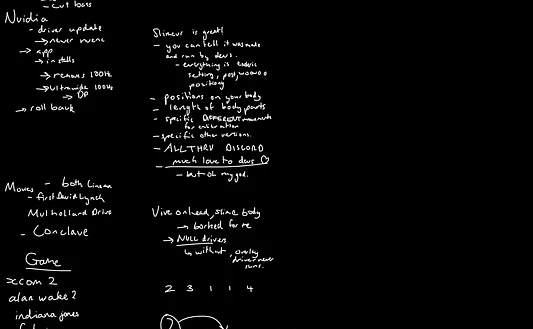 - cut bars
Nvidia
- driver update
→ newer
→ app
→ installs
→ 100Hz
→ ultrawide 100Hz
→ DP
→ roll back
Movies - both Cinema
- first David Lynch
Mulholland Drive
- Conclave
Game
xcom 2
alan wake 2
indiana jones
Slimevr is great!
- you can tell it was made
and run by devs.
- everything is
setting, post,
positions
- positions on your body
- length of body parts
- specific DIFFERENT movements
for calibration
- specific other versions.
- ALL THRU DISCORD
- much love to devs ♡
- but oh my god.
Vive on head, slime body
→ borked for me
→ NULL drivers
↳ without, overlay
driver never
runs.
2 3 1 1 4
2